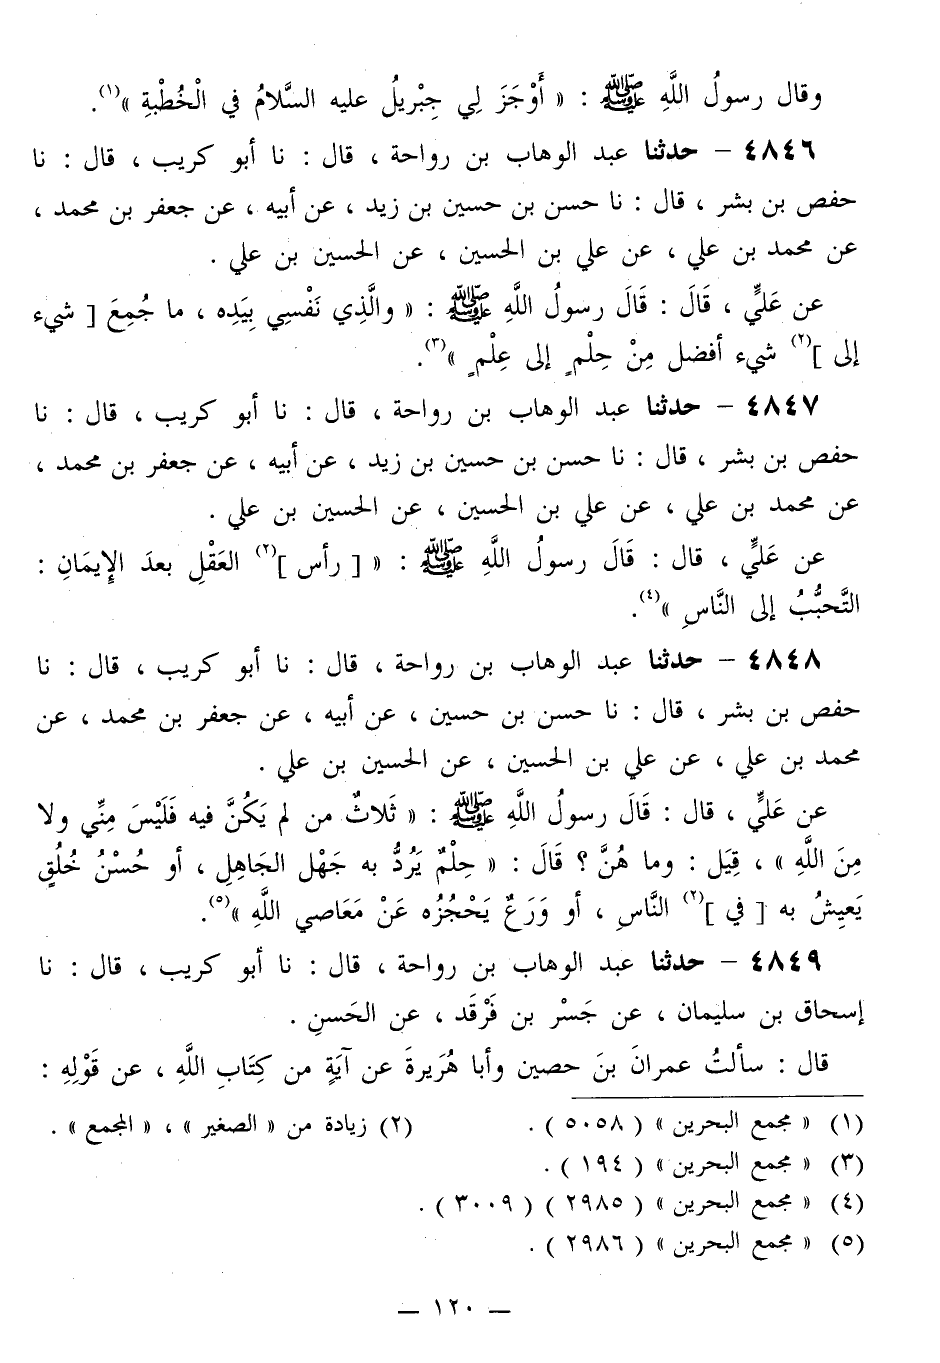 وقال رسولُ اللَّهِ ﷺ : « أَوْجَزَ لِي جِبْرِيلُ عليه السَّلامُ في الْخُطْبةِ »(١).
٤٨٤٦ – حدثنا عبد الوهاب بن رواحة ، قال : نا أبو كريب ، قال : نا
حفص بن بشر ، قال : نا حسن بن حسين بن زيد ، عن أبيه ، عن جعفر بن محمد ،
عن محمد بن علي ، عن علي بن الحسين ، عن الحسين بن علي .
عن عَليٍّ ، قَالَ : قَالَ رسولُ اللَّهِ ﷺ : « والَّذِي نَفْسِي بِيَدِه ، ما جُمِعَ [ شيء
إلى ](٢) شيء أفضل مِنْ حِلْمٍ إلى عِلْمٍ »(٣).
٤٨٤٧ – حدثنا عبد الوهاب بن رواحة ، قال : نا أبو كريب ، قال : نا
حفص بن بشر ، قال : نا حسن بن حسين بن زيد ، عن أبيه ، عن جعفر بن محمد ،
عن محمد بن علي ، عن علي بن الحسين ، عن الحسين بن علي .
عن عَليٍّ ، قال : قَالَ رسولُ اللَّهِ ﷺ : « [ رأس ](٢) العَقْلِ بعدَ الإِيمَانِ :
التَّحبُّبُ إلى النَّاسِ »(٤).
٤٨٤٨ – حدثنا عبد الوهاب بن رواحة ، قال : نا أبو كريب ، قال : نا
حفص بن بشر ، قال : نا حسن بن حسين ، عن أبيه ، عن جعفر بن محمد ، عن
محمد بن علي ، عن علي بن الحسين ، عن الحسين بن علي .
عن عَليٍّ ، قال : قَالَ رسولُ اللَّهِ ﷺ : « ثَلاثٌ من لم يَكُنَّ فيه فَلَيْسَ مِنِّي ولا
مِنَ اللَّهِ » ، قِيَل : وما هُنَّ ؟ قَالَ : « حِلْمٌ يَرُدُّ به جَهْل الجَاهِلِ ، أو حُسْنُ خُلُقٍ
يَعيشُ به [ في ](٢) النَّاسِ ، أو وَرَعٌ يَحْجُزُه عَنْ مَعَاصي اللَّهِ »(٥).
٤٨٤٩ – حدثنا عبد الوهاب بن رواحة ، قال : نا أبو كريب ، قال : نا
إسحاق بن سليمان ، عن جَسْر بن فَرْقَد ، عن الحَسنِ .
قال : سألتُ عمرانَ بنَ حصين وأبا هُرَيرةَ عن آيَةٍ من كِتَابِ اللَّهِ ، عن قَوْلِهِ :
(١) « مجمع البحرين » ( ٥٠٥٨ ) . (٢) زيادة من « الصغير » ، « المجمع » .
(٣) « مجمع البحرين » ( ١٩٤ ) .
(٤) « مجمع البحرين » ( ٢٩٨٥ ) ( ٣٠٠٩ ) .
(٥) « مجمع البحرين » ( ٢٩٨٦ ) .
— ١٢٠ —